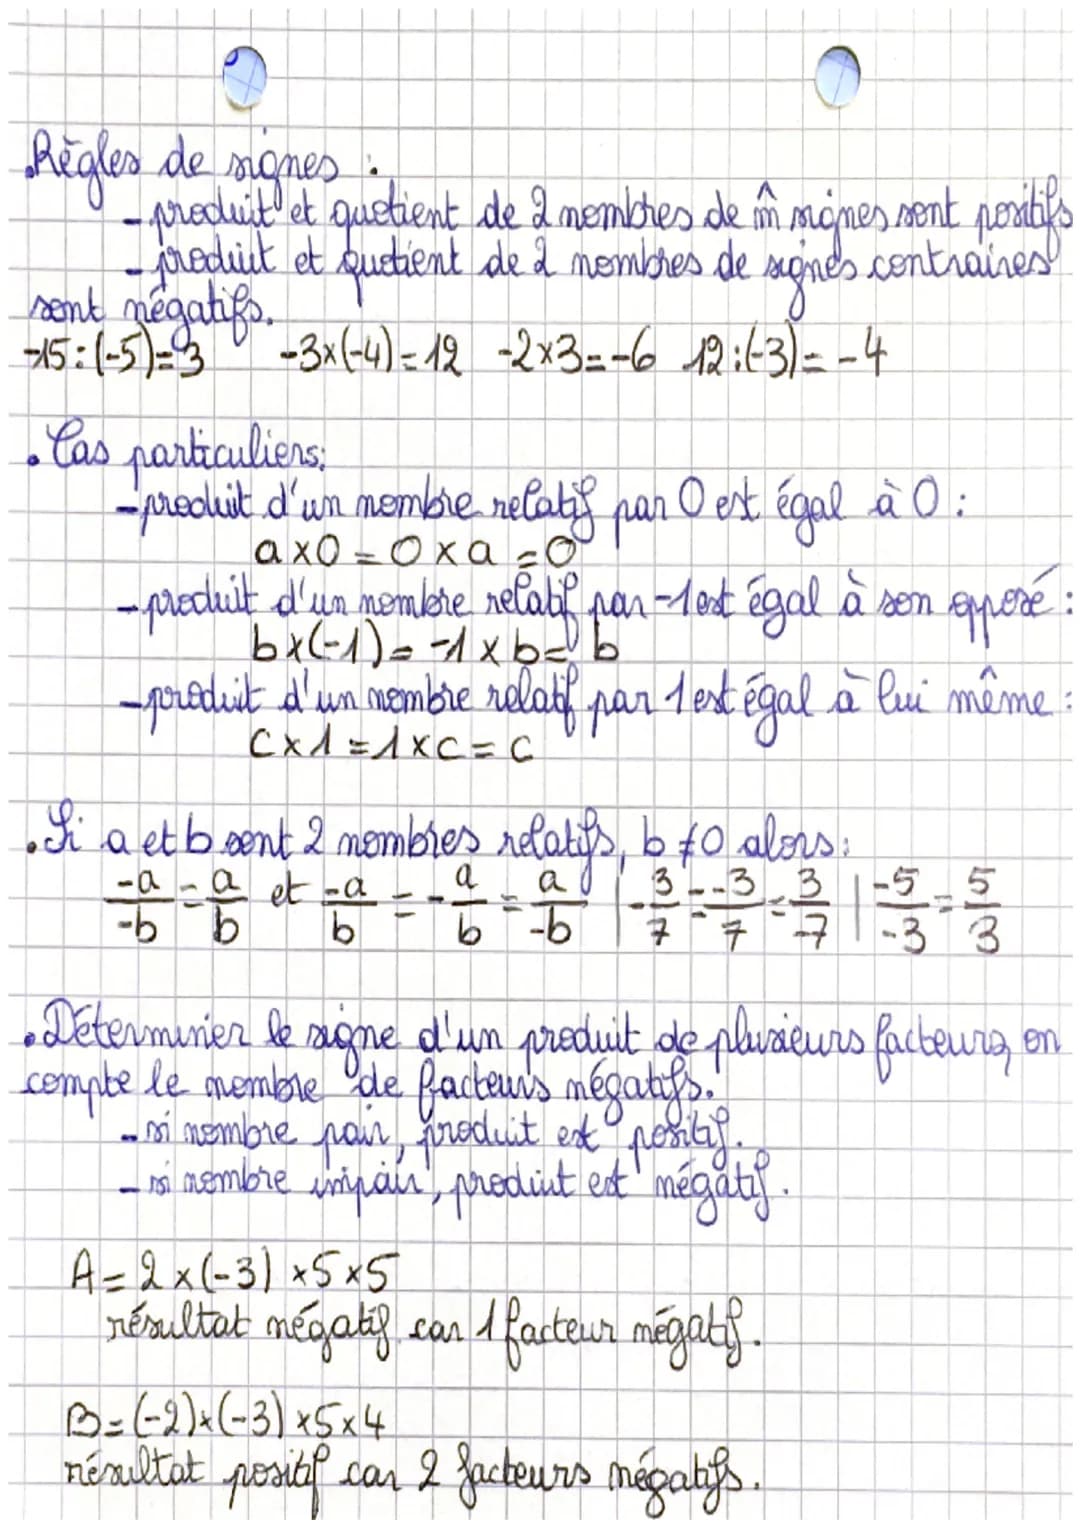 • Règles de signes :
- produit et quotient de 2 nombres de m̂ signes sont positifs
- produit et quotient de 2 nombres de signes contraires
sont négatifs.
-15 : (-5) = 3 -3×(-4) = 12 -2×3 = -6 12 : (-3) = -4
• Cas particuliers :
- produit d'un nombre relatif par 0 est égal à 0 :
a×0 = 0×a = 0
- produit d'un nombre relatif par -1 est égal à son opposé :
b×(-1) = -1×b = b
- produit d'un nombre relatif par 1 est égal à lui même :
c×1 = 1×c = c
• Si a et b sont 2 nombres relatifs, b ≠ 0 alors :
-a/-b = a/b et -a/b = -a/b = a/-b | -3/7 = -3/7 = 3/-7 | -5/-3 = 5/3
• Déterminer le signe d'un produit de plusieurs facteurs, on
compte le nombre de facteurs négatifs.
- si nombre pair, produit est positif.
- si nombre impair, produit est négatif.
A = 2×(-3)×5×5
résultat négatif car 1 facteur négatif.
B = (-2)×(-3)×5×4
résultat positif car 2 facteurs négatifs.